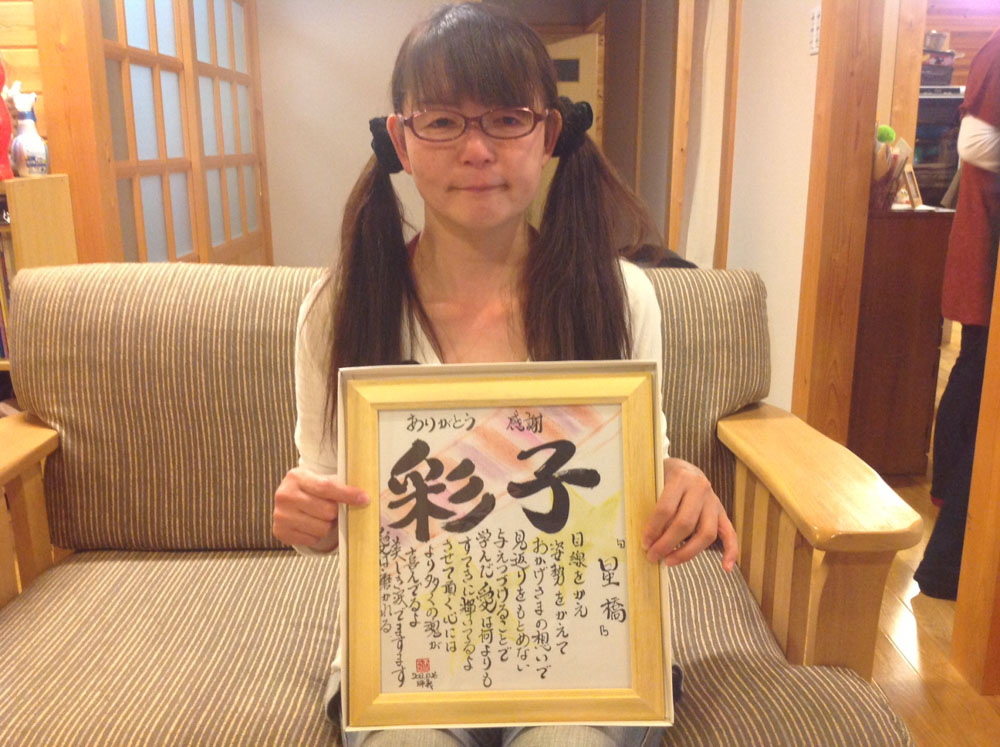 ありがとう
感謝
彩子
「星橋」
目線をかえ
姿勢をかえて
おかげさまの想いで
見返りをもとめない
与えつづけることで
学んだ愛は何よりも
すてきに輝いてるよ
させて頂く心には
より多くの魂が
喜んでるよ
美しき涙でますます
愛は磨かれる